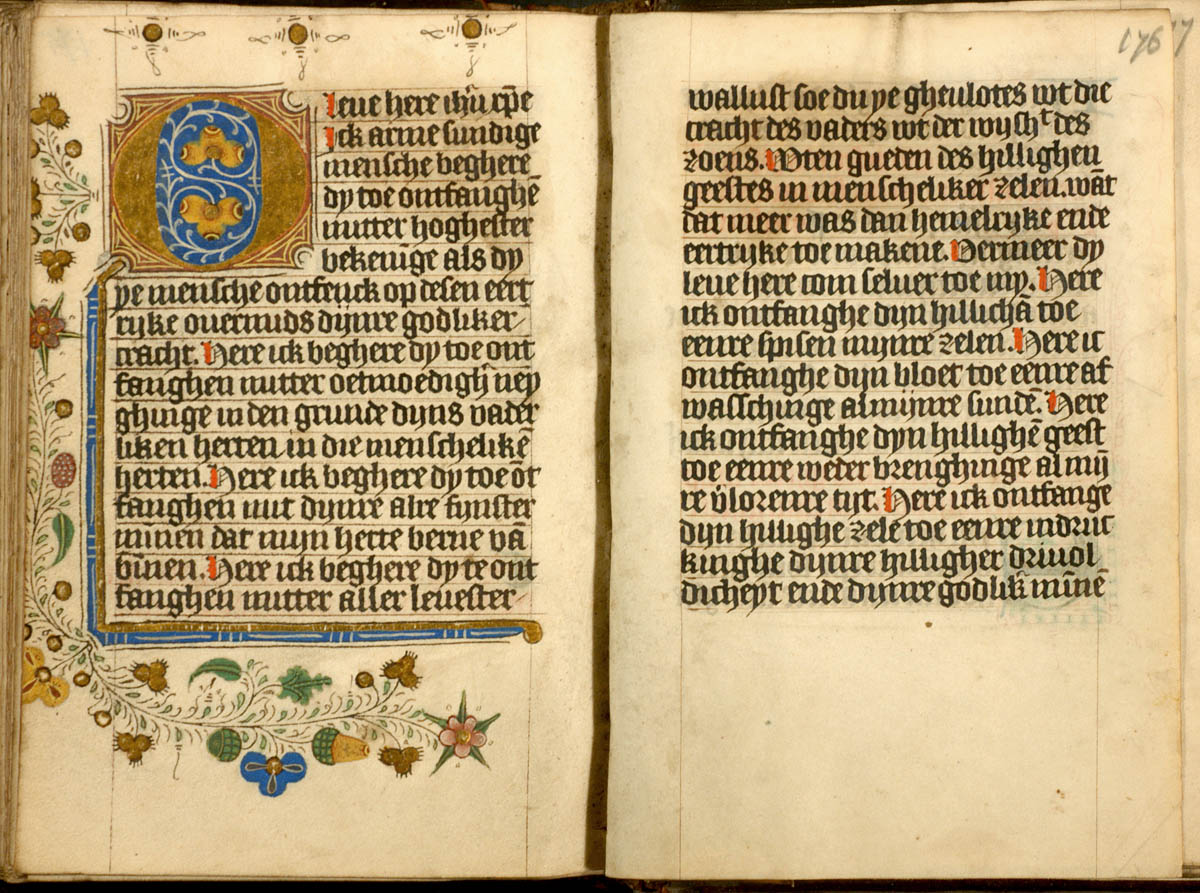 O leue here ihū xp̄e
Ick arme sundige
mensche beghere
dy toe ontfanghē
mitter hoghester
bekenīge als dy
ye mensche ontfenck op desen eert
ryke ouermids dynre godliker
cracht. Here ick beghere dy toe ont
fanghen mitter oetmoedigh ney
ghinge in den grunde dyns vader
liken herten in die menschelikē
herten. Here ick beghere dy toe ōt
fanghen mit dynre alre fynster
mīnen dat mijn herte berne vā
bīnen. Here ick beghere dy te ont
fanghen mitter aller leuester
176
wallust soe du ye gheulotes wt die
cracht des vaders wt der wysht des
zoens. Wten gueden des hillighen
geestes in menscheliker zelen. wāt
dat meer was dan hemelryke ende
eertryke toe makene. Vermeer dy
leue here com seluer toe my. Here
ick ontfanghe dijn hillichā toe
eenre spisen mijnre zelen. Here ic
ontfanghe dijn bloet toe eenre af
wasschinge al mijnre sundē. Here
ick ontfanghe dyn hillighē geest
toe eenre weder brenghinge al mij
re v̄lorenre tijt. Here ick ontfange
dijn hillighe zele toe eenre indruc
kinghe dijnre hilligher drivol
dicheyt ende dijnre godlik̄ mīnē